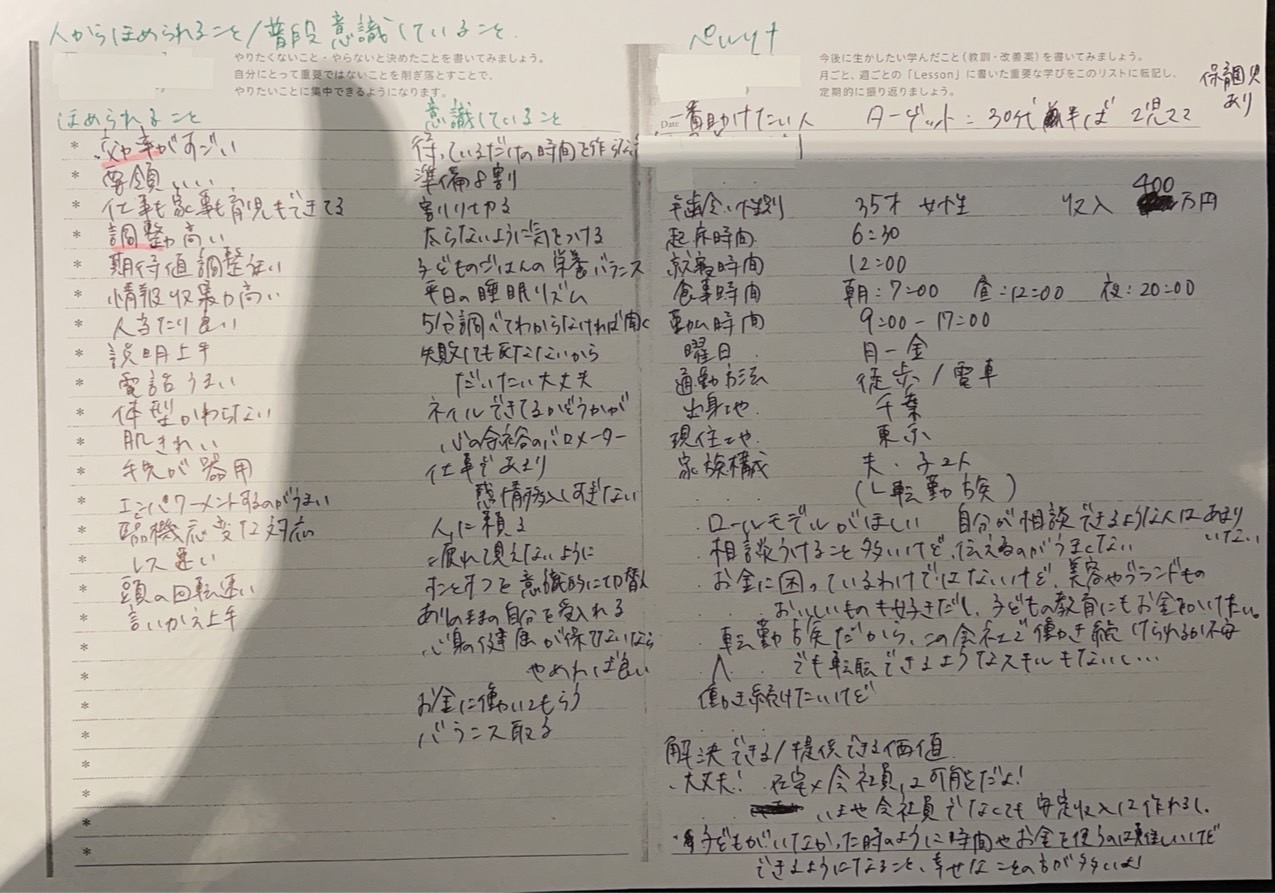 人からほめられること/普段意識していること
やりたくないこと・やらないと決めたことを書いてみましょう。
自分にとって重要ではないことを削ぎ落とすことで、
やりたいことに集中できるようになります。
ほめられること
* 効率がすごい
* 要領いい
* 仕事も家事も育児もできてる
* 調整力高い
* 期待値調整
* 情報収集力高い
* 人当たり良い
* 説明上手
* 電話うまい
* 体型かわらない
* 肌きれい
* 手先が器用
* エンパワーメントするのがうまい
* 臨機応変な対応
* レス速い
* 頭の回転速い
* 言いかえ上手
*
*
*
*
*
*
*
*
意識していること
待っているだけの時間を作らない
準備8割
割りりきる
太らないように気をつける
子どものごはんの栄養バランス
平日の睡眠リズム
5分調べてわからなければ聞く
失敗しても死なないから
だいたい大丈夫
ネイルできてるかどうかが
心の余裕のバロメーター
仕事であまり
感情移入しすぎない
人に頼る
疲れて見えないように
オンとオフを意識的に切り替え
ありのままの自分を受入れる
心身の健康が保てないなら
やめれば良い
お金に働いてもらう
バランス取る
ペルソナ
今後に生かしたい学んだこと(教訓・改善案)を書いてみましょう。
月ごと、週ごとの「Lesson」に書いた重要な学びをこのリストに転記し、
定期的に振り返りましょう。
保育園児
あり
Date
一番助けたい人 ターゲット:30代半ば 2児ママ
年齢/性別 35才 女性 収入 400万円
起床時間 6:30
就寝時間 12:00
食事時間 朝:7:00 昼:12:00 夜:20:00
勤ム時間 9:00-17:00
曜日 月-金
通勤方法 徒歩/電車
出身地 千葉
現住地 東京
家族構成 夫・子2人
(転勤族)
・ロールモデルがほしい 自分が相談できるような人はあまり
いない
・相談うけること多いけど、伝えるのがうまくない
・お金に困っているわけではないけど、美容やブランドもの
おいしいものも好きだし、子どもの教育にもお金をかけたい。
・転勤族だから、この会社で働き続けられるか不安
でも転職できるようなスキルもないし…
働き続けたいけど
解決できる/提供できる価値
・大丈夫! 在宅×会社員は可能だよ!
いまや会社員でなくても安定収入は作れるし、
・子どもがいなかった時のように時間やお金を使うのは難しいけど
できるようになること、幸せなことの方が多いよ